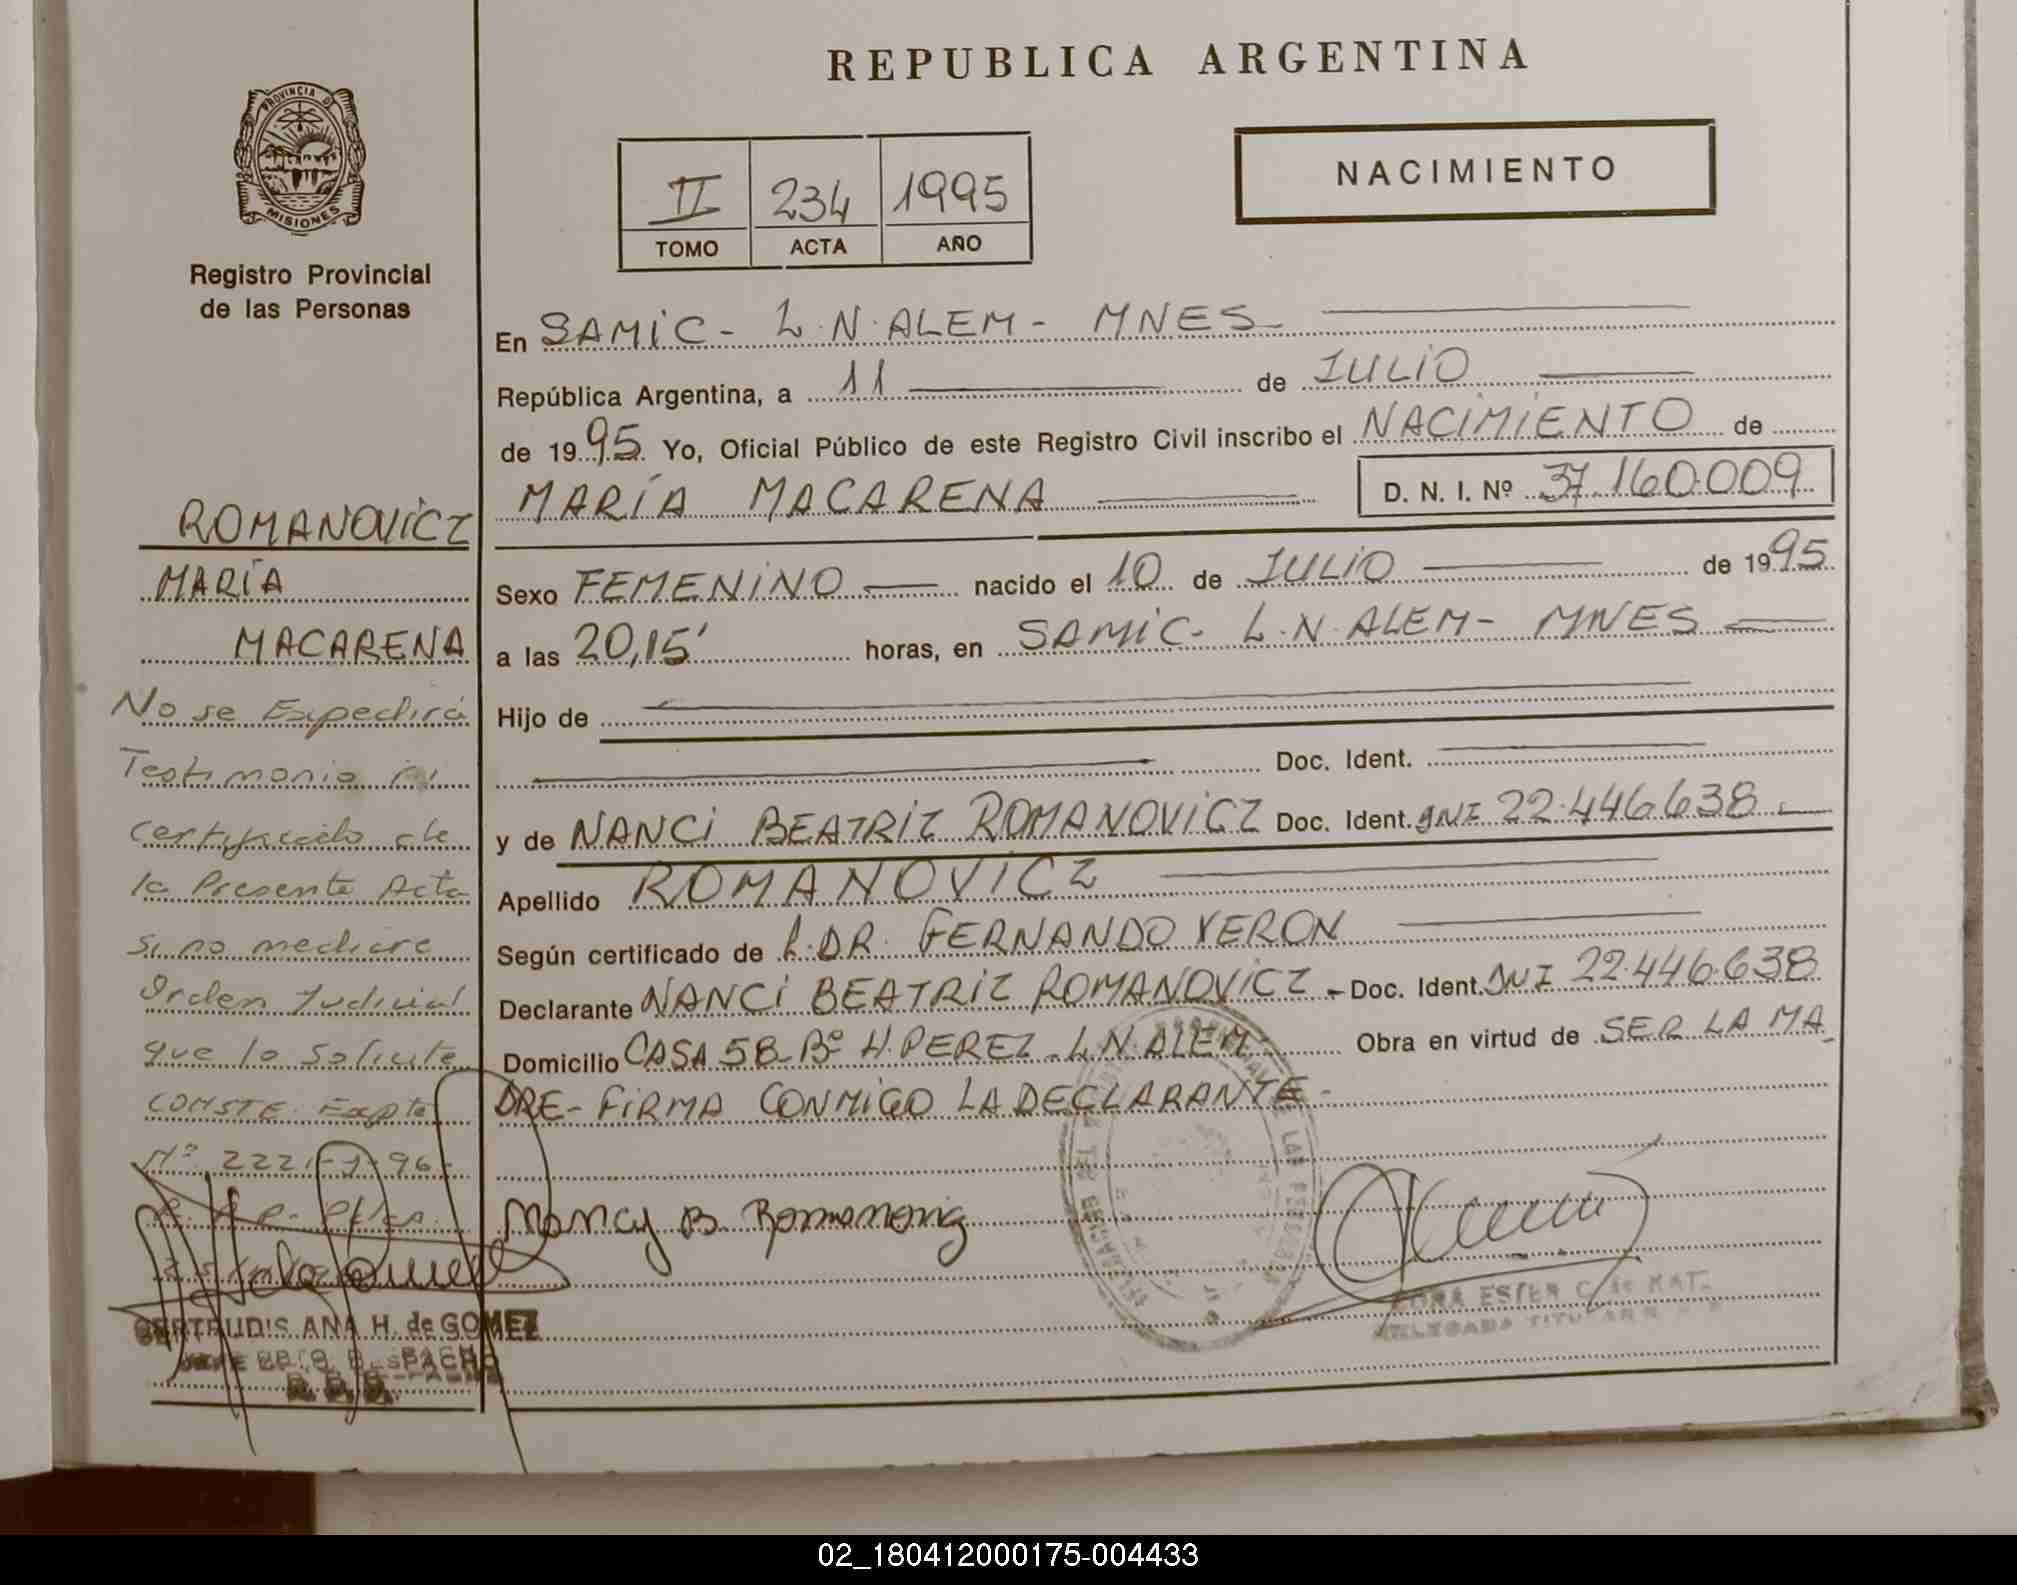 REPUBLICA ARGENTINA
PROVINCIA DE
MISIONES
Registro Provincial
de las Personas
II 234 1995
TOMO ACTA AÑO
NACIMIENTO
En SAMIC - L.N. ALEM - MNES
República Argentina, a 11 de JULIO
de 1995 Yo, Oficial Público de este Registro Civil inscribo el NACIMIENTO de
MARÍA MACARENA D. N. I. Nº 37.160.009
Sexo FEMENINO nacido el 10 de JULIO de 1995
a las 20,15' horas, en SAMIC - L.N. ALEM - MNES
Hijo de
Doc. Ident.
y de NANCI BEATRIZ ROMANOVICZ Doc. Ident. DNI 22.446.638
Apellido ROMANOVICZ
Según certificado de DR. FERNANDO VERON
Declarante NANCI BEATRIZ ROMANOVICZ - Doc. Ident. DNI 22.446.638
Domicilio CASA 58 - Bº H. PEREZ - L.N. ALEM - Obra en virtud de SER LA MA
DRE - FIRMA CONMIGO LA DECLARANTE -
Nancy B. Romanovicz
ROMANOVICZ
MARÍA
MACARENA
No se Expedirá
Testimonio ni
certificado de
la Presente Acta
si no mediare
Orden Judicial
que lo solicite
CONSTE. Expte
Nº 222 96
GERTRUDIS ANA H. de GOMEZ
JEFE DESPACHO
ESTER C. de
DELEGADA TITULAR
02_180412000175-004433